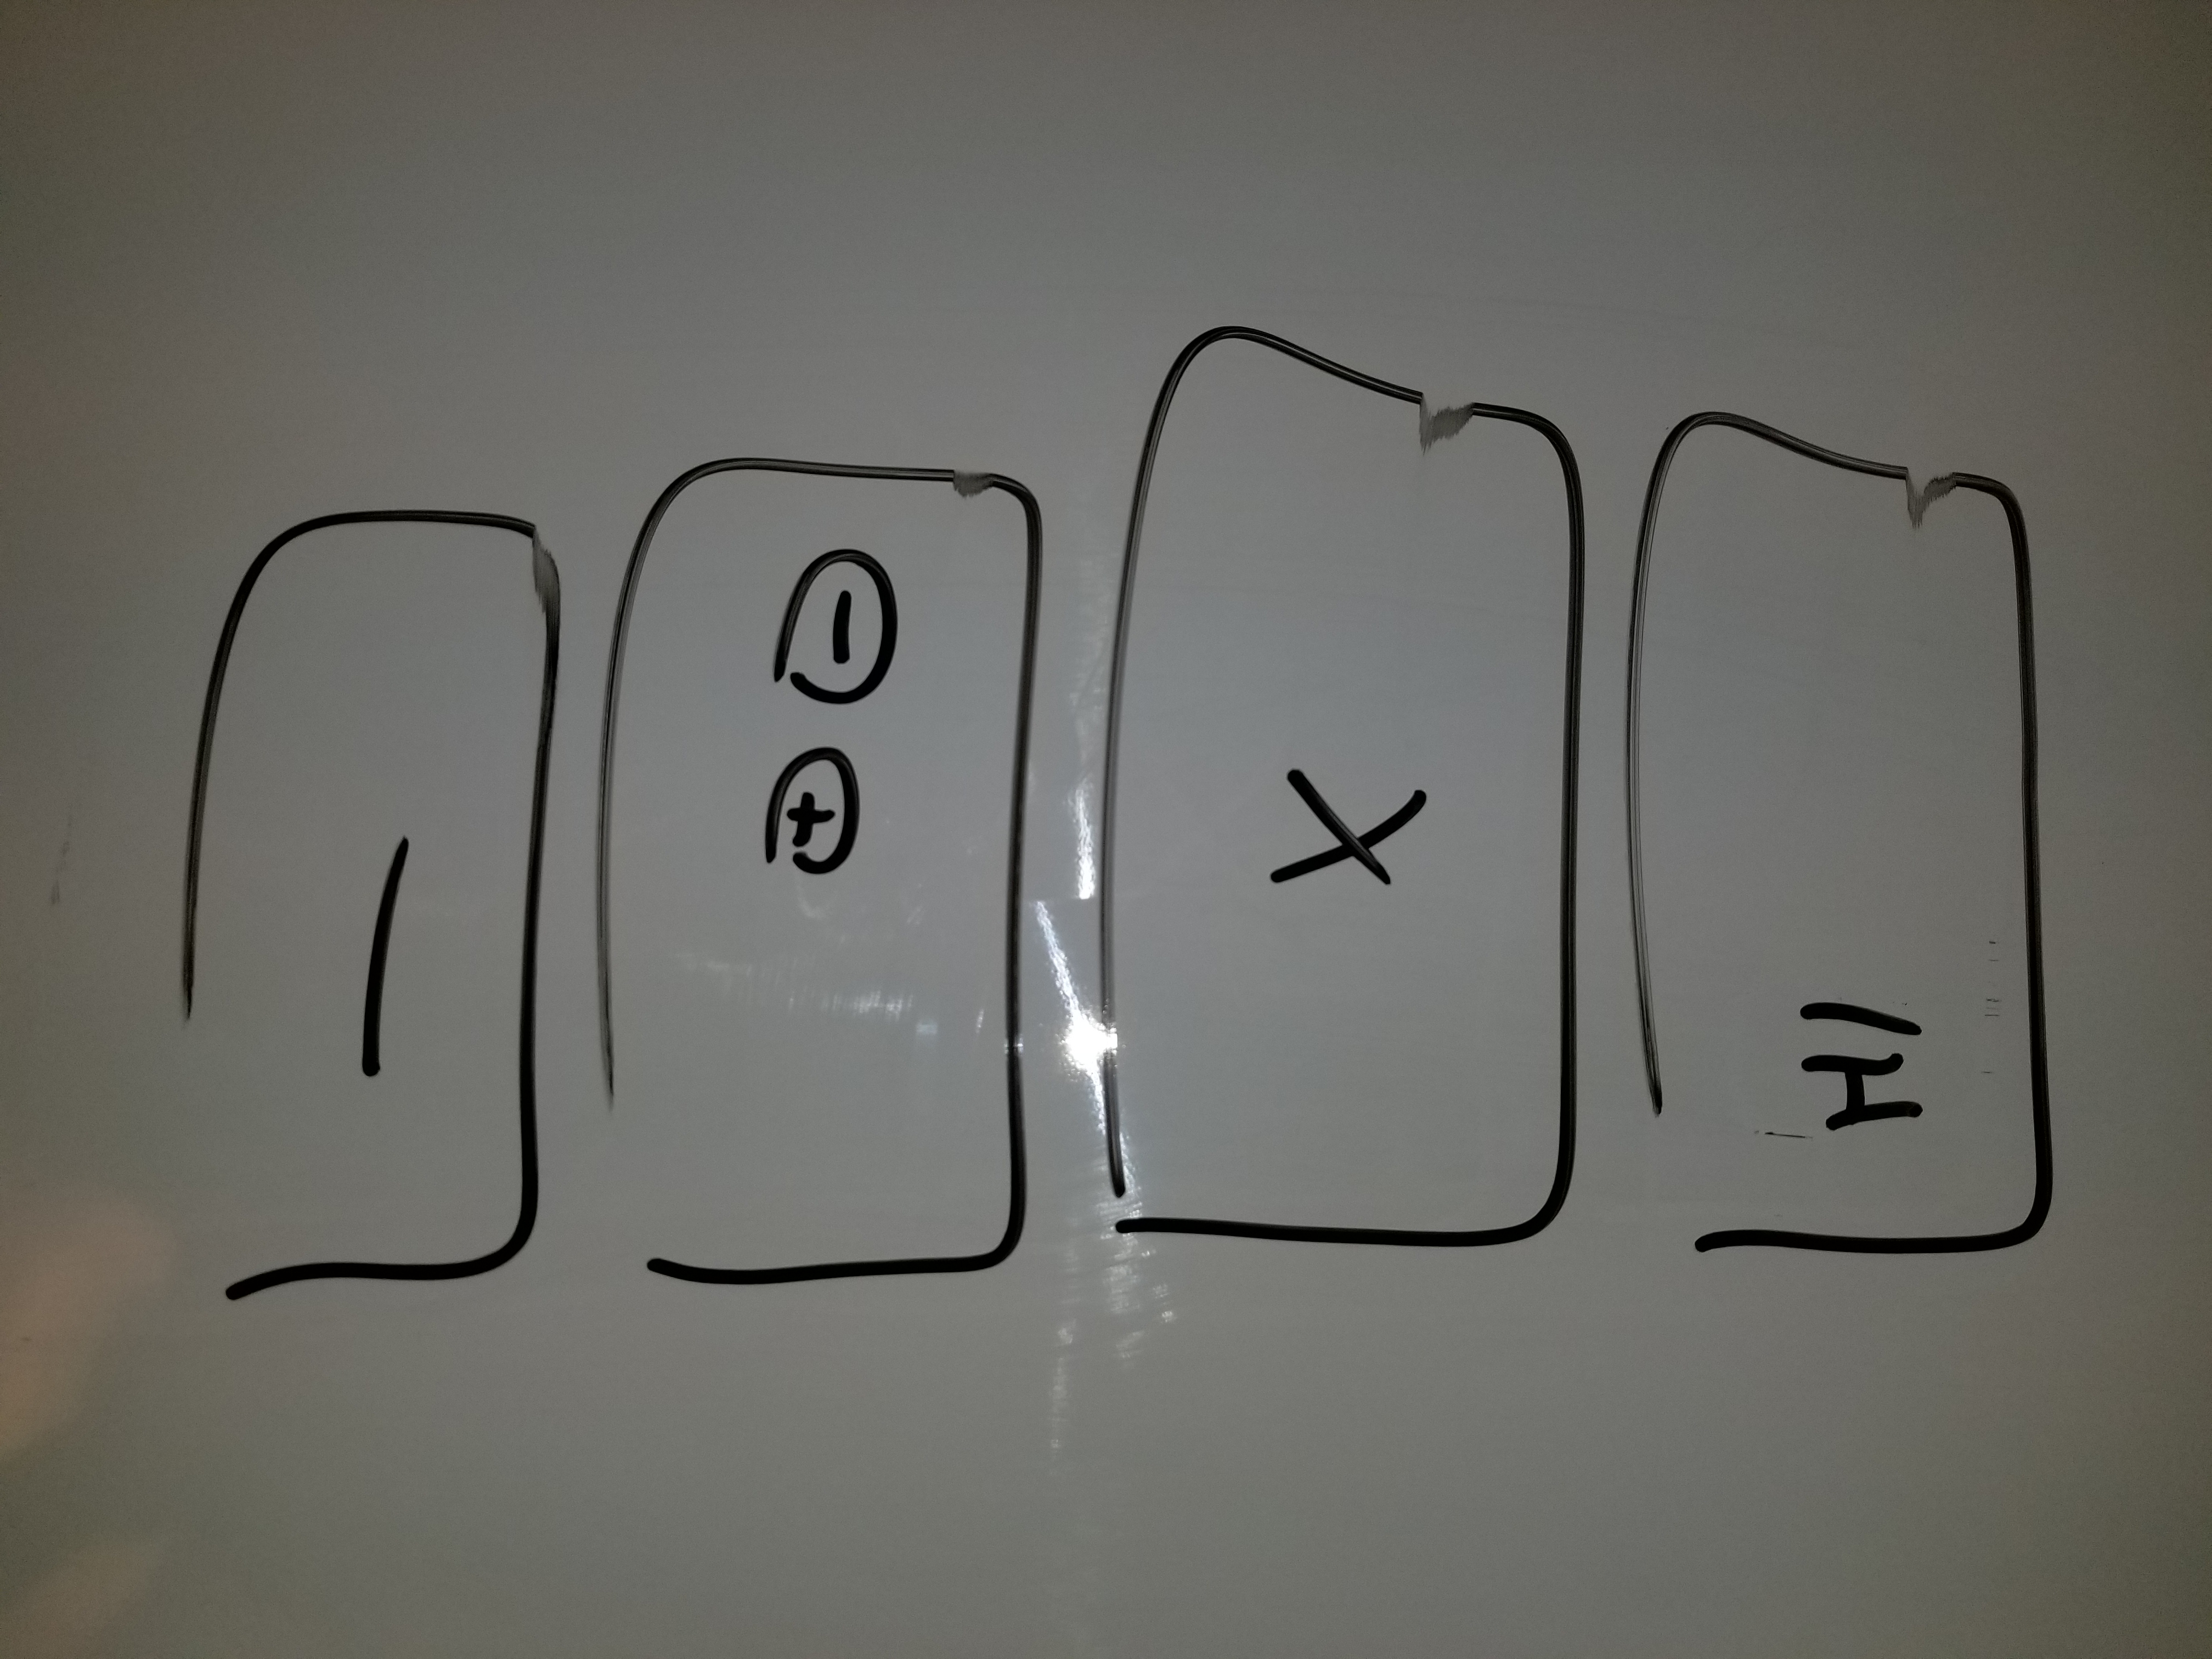 —
⊕ ⊖
X
HI